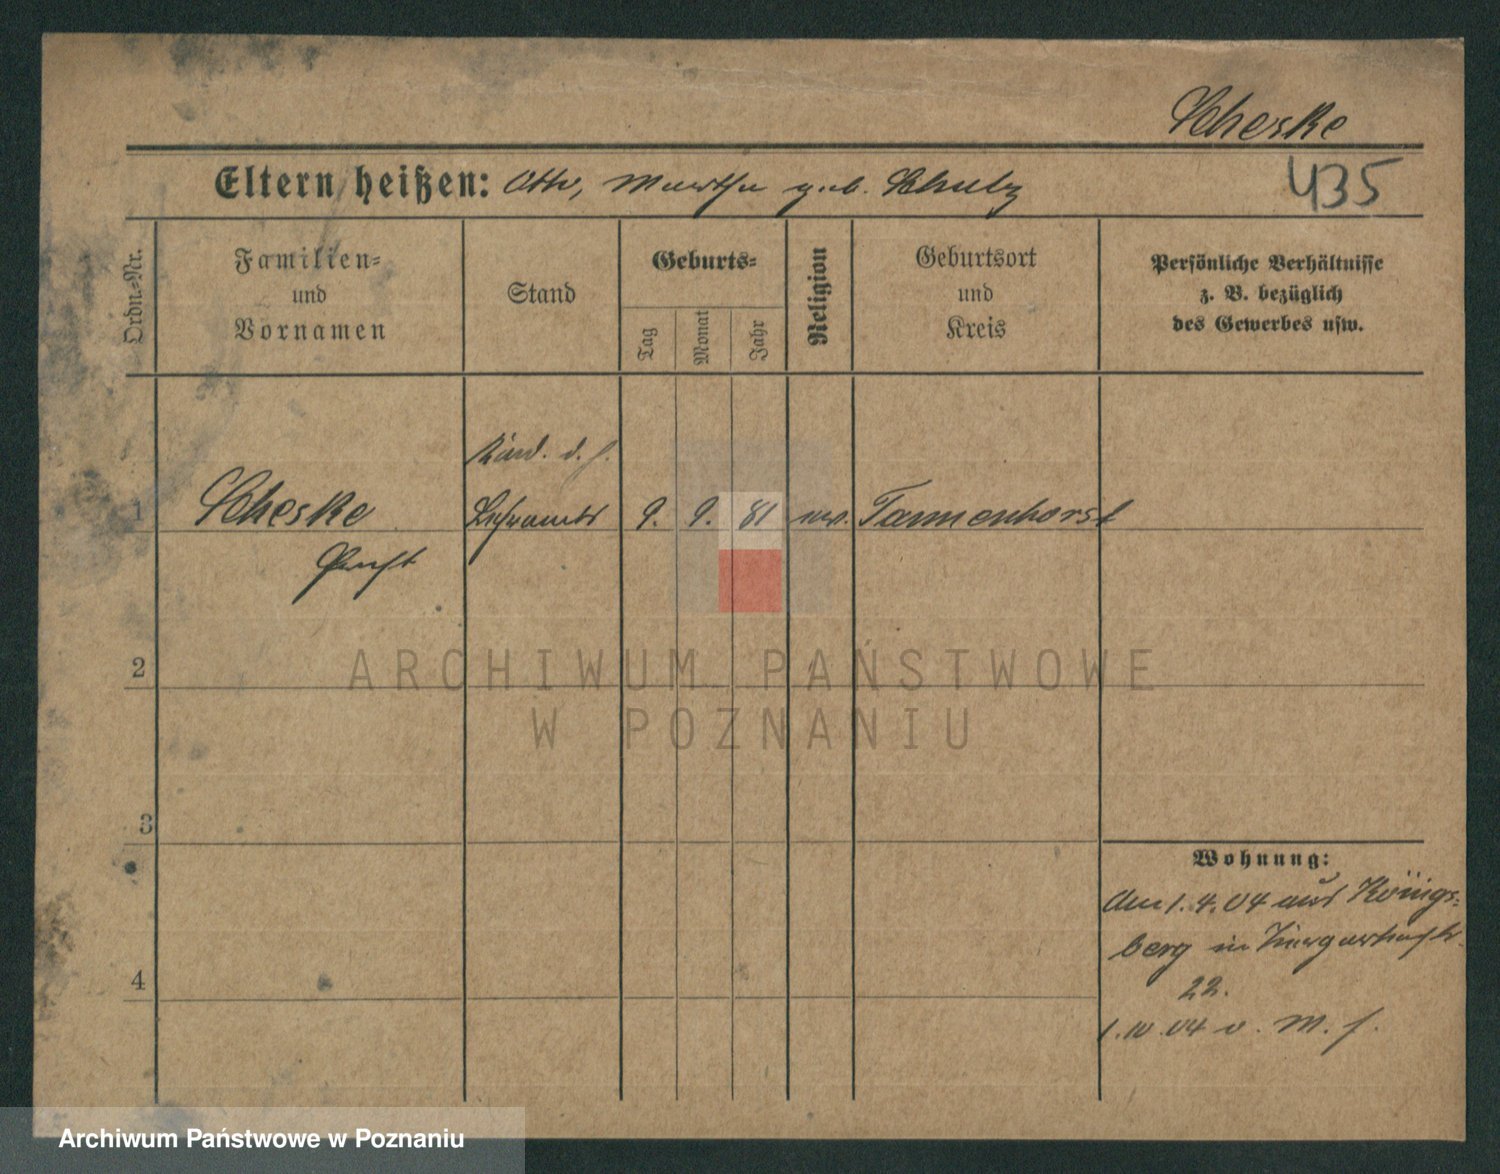 Scheske
435
Eltern heißen: Otto, Martha geb. Schulz
Ordn.-Nr.
Familien-
und
Vornamen
Stand
Geburts-
Tag
Monat
Jahr
Religion
Geburtsort
und
Kreis
Persönliche Verhältnisse
z. B. bezüglich
des Gewerbes usw.
Kand. d. h.
1 Scheske Lehramts 9. 9. 81 ev. Tannenhorst
ARCHIWUM PAŃSTWOWE
W POZNANIU
2
3
4
Wohnung:
Am 1.4.04 aus Königs-
berg in
22.
1.10.04 v. M.
Archiwum Państwowe w Poznaniu